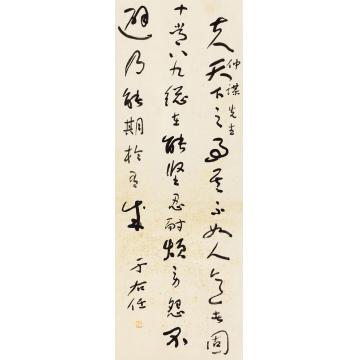 仲先生
夫天下之事其不如人意者固
十常八九總在能堅忍耐煩勞怨不
避乃能期於有成
于右任